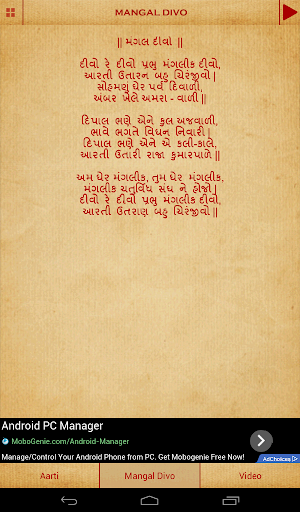 MANGAL DIVO
|| મંગલ દીવો ||
દીવો રે દીવો પ્રભુ મંગલીક દીવો,
આરતી ઉતારન બહુ ચિરંજીવો |
સોહમણું ઘેર પર્વ દિવાળી,
અંબર ખેલે અમરા - વાળી ||
દિપાલ ભણે એને કુલ અજવાળી,
ભાવે ભગતે વિઘન નિવારી |
દિપાલ ભણે એને એ કલી-કાલે,
આરતી ઉતારી રાજા કુમારપાળે ||
અમ ઘેર મંગલીક, તુમ ઘેર મંગલીક,
મંગલીક ચતુર્વિધ સંઘ ને હોજો |
દીવો રે દીવો પ્રભુ મંગલીક દીવો,
આરતી ઉતરાણ બહુ ચિરંજીવો ||
Android PC Manager
MoboGenie.com/Android-Manager
Manage/Control Your Android Phone from PC. Get Mobogenie Free Now!
AdChoices
Aarti
Mangal Divo
Video